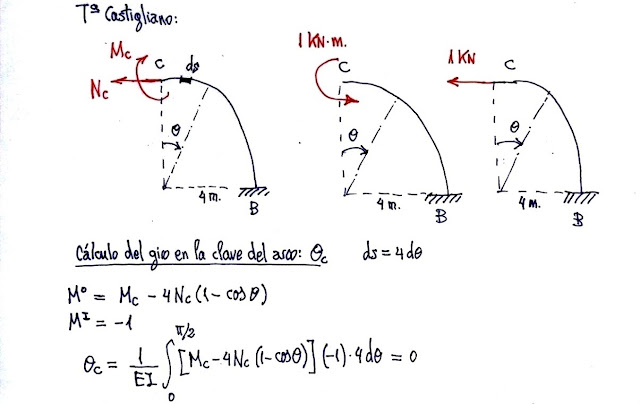 Tª Castigliano:
Mc
C
ds
Nc
θ
4 m.
B
1 KN·m.
C
θ
4 m.
B
1 KN
C
θ
4 m.
B
Cálculo del giro en la clave del arco: θc ds = 4 dθ
M⁰ = Mc − 4 Nc (1 − cos θ)
Mᴵ = −1
θc = 1/EI ∫₀^π/2 [Mc − 4 Nc (1 − cos θ)] (−1) · 4 dθ = 0